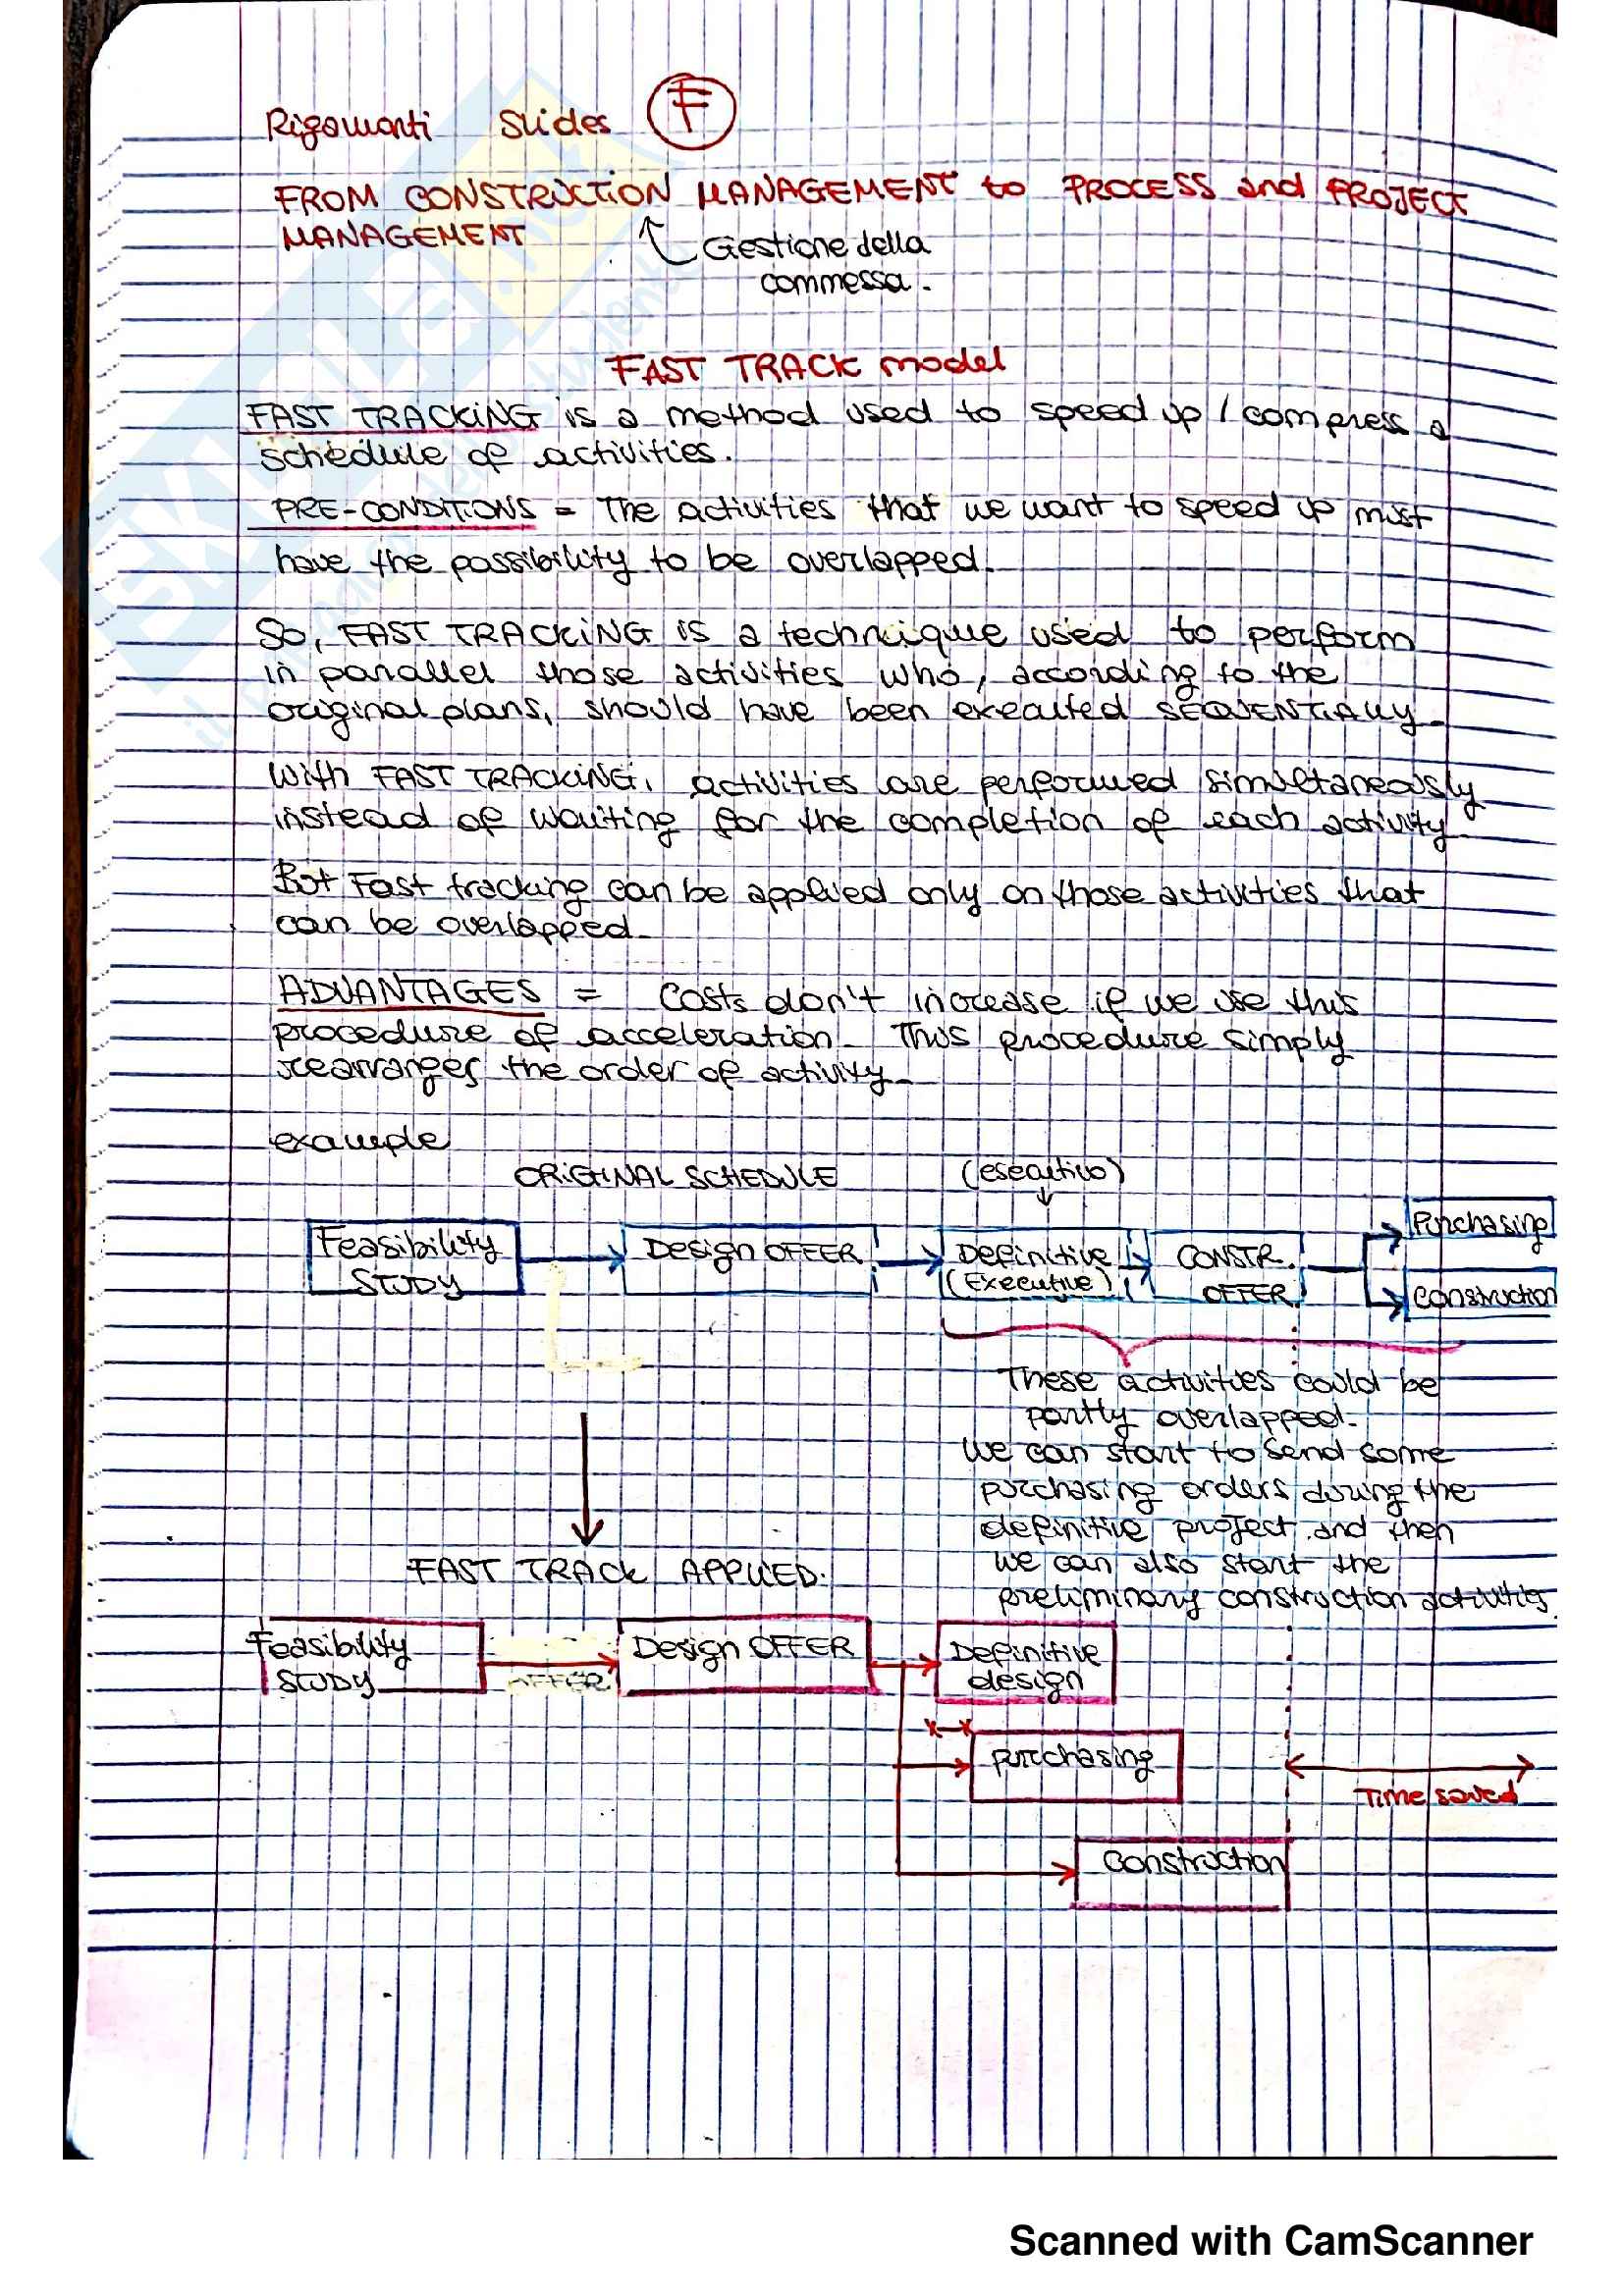 Rigamonti Slides F
FROM CONSTRUCTION MANAGEMENT to PROCESS and PROJECT
MANAGEMENT
Gestione della
commessa.
FAST TRACK model
FAST TRACKING is a method used to speed up / compress a
schedule of activities.
PRE-CONDITIONS = The activities that we want to speed up must
have the possibility to be overlapped.
So, FAST TRACKING is a technique used to perform
in parallel those activities who, according to the
original plans, should have been executed SEQUENTIALLY.
With FAST TRACKING, activities are performed simultaneously
instead of waiting for the completion of each activity
But Fast tracking can be applied only on those activities that
can be overlapped.
ADVANTAGES = Costs don't increase if we use this
procedure of acceleration. This procedure simply
rearranges the order of activity.
example
ORIGINAL SCHEDULE (esecutivo)
Feasibility
STUDY
Design OFFER
Definitive
(Executive)
CONSTR.
OFFER
Purchasing
construction
These activities could be
partly overlapped.
We can start to send some
purchasing orders during the
definitive project and then
we can also start the
preliminary construction activities.
FAST TRACK APPLIED:
Feasibility
STUDY
OFFER
Design OFFER
Definitive
design
purchasing
Time saved
construction
Scanned with CamScanner